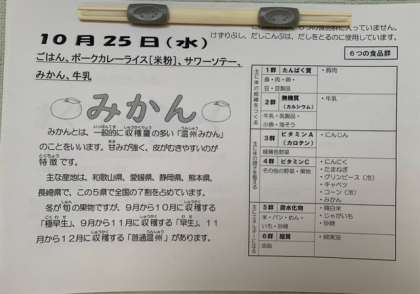 に入っていません。
けずりぶし、だしこんぶは、だしをとるのに使用しています。
10月25日(水)
ごはん、ポークカレーライス[米粉]、サワーソテー、
みかん、牛乳
みかん
みかんとは、一般的に収穫量の多い「温州みかん」
のことをいいます。甘みが強く、皮がむきやすいのが
特徴です。
主な産地は、和歌山県、愛媛県、静岡県、熊本県、
長崎県で、この5県で全国の7割を占めています。
冬が旬の果物ですが、9月から10月に収穫する
「極早生」、9月から11月に収穫する「早生」、11
月から12月に収穫する「普通温州」があります。
6つの食品群
1群 たんぱく質 ・豚肉
魚・肉・卵・
豆・豆製品
2群 無機質 ・牛乳
(カルシウム)
牛乳・乳製品・
小魚・海そう
3群 ビタミンA ・にんじん
(カロテン)
緑黄色野菜
4群 ビタミンC ・にんにく
その他の野菜・果物 ・たまねぎ
・グリンピース(冷)
・キャベツ
・コーン(冷)
・みかん
5群 炭水化物 ・精白米
米・パン・めん・ ・じゃがいも
いも・砂糖 ・砂糖
6群 脂質
油脂